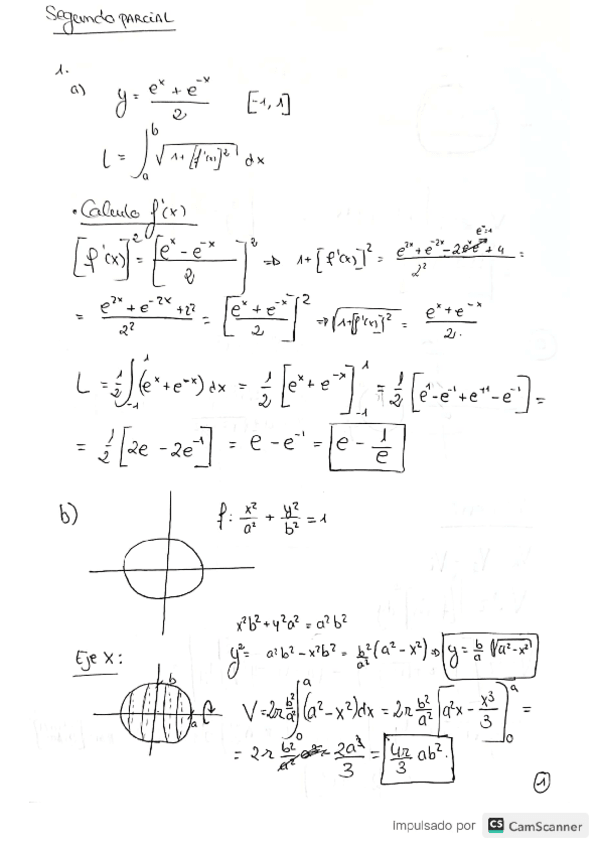 Segundo PARCIAL
1.
a) y = (e^x + e^-x)/2 [-1, 1]
L = ∫_a^b √(1 + [f'(x)]^2) dx
• Calculo f'(x)
[f'(x)]^2 = [(e^x - e^-x)/2]^2 ⇒ 1 + [f'(x)]^2 = (e^2x + e^-2x - 2e^x e^-x + 4)/2^2 =
= (e^2x + e^-2x + 2)/2^2 = [(e^x + e^-x)/2]^2 ⇒ √(1+[f'(x)]^2) = (e^x + e^-x)/2.
L = 1/2 ∫_-1^1 (e^x + e^-x) dx = 1/2 [e^x + e^-x]_-1^1 = 1/2 [e^1 - e^-1 + e^+1 - e^-1] =
= 1/2 [2e - 2e^-1] = e - e^-1 = e - 1/e
b) f: x^2/a^2 + y^2/b^2 = 1
x^2b^2 + y^2a^2 = a^2b^2
y^2 = a^2b^2 - x^2b^2 = b^2/a^2 (a^2 - x^2) ⇒ y = b/a √(a^2 - x^2)
Eje X:
b
a
V = 2π b^2/a^2 ∫_0^a (a^2 - x^2) dx = 2π b^2/a^2 [a^2x - x^3/3]_0^a =
= 2π b^2/a^2 2a^3/3 = 4π/3 ab^2.
1
Impulsado por CS CamScanner